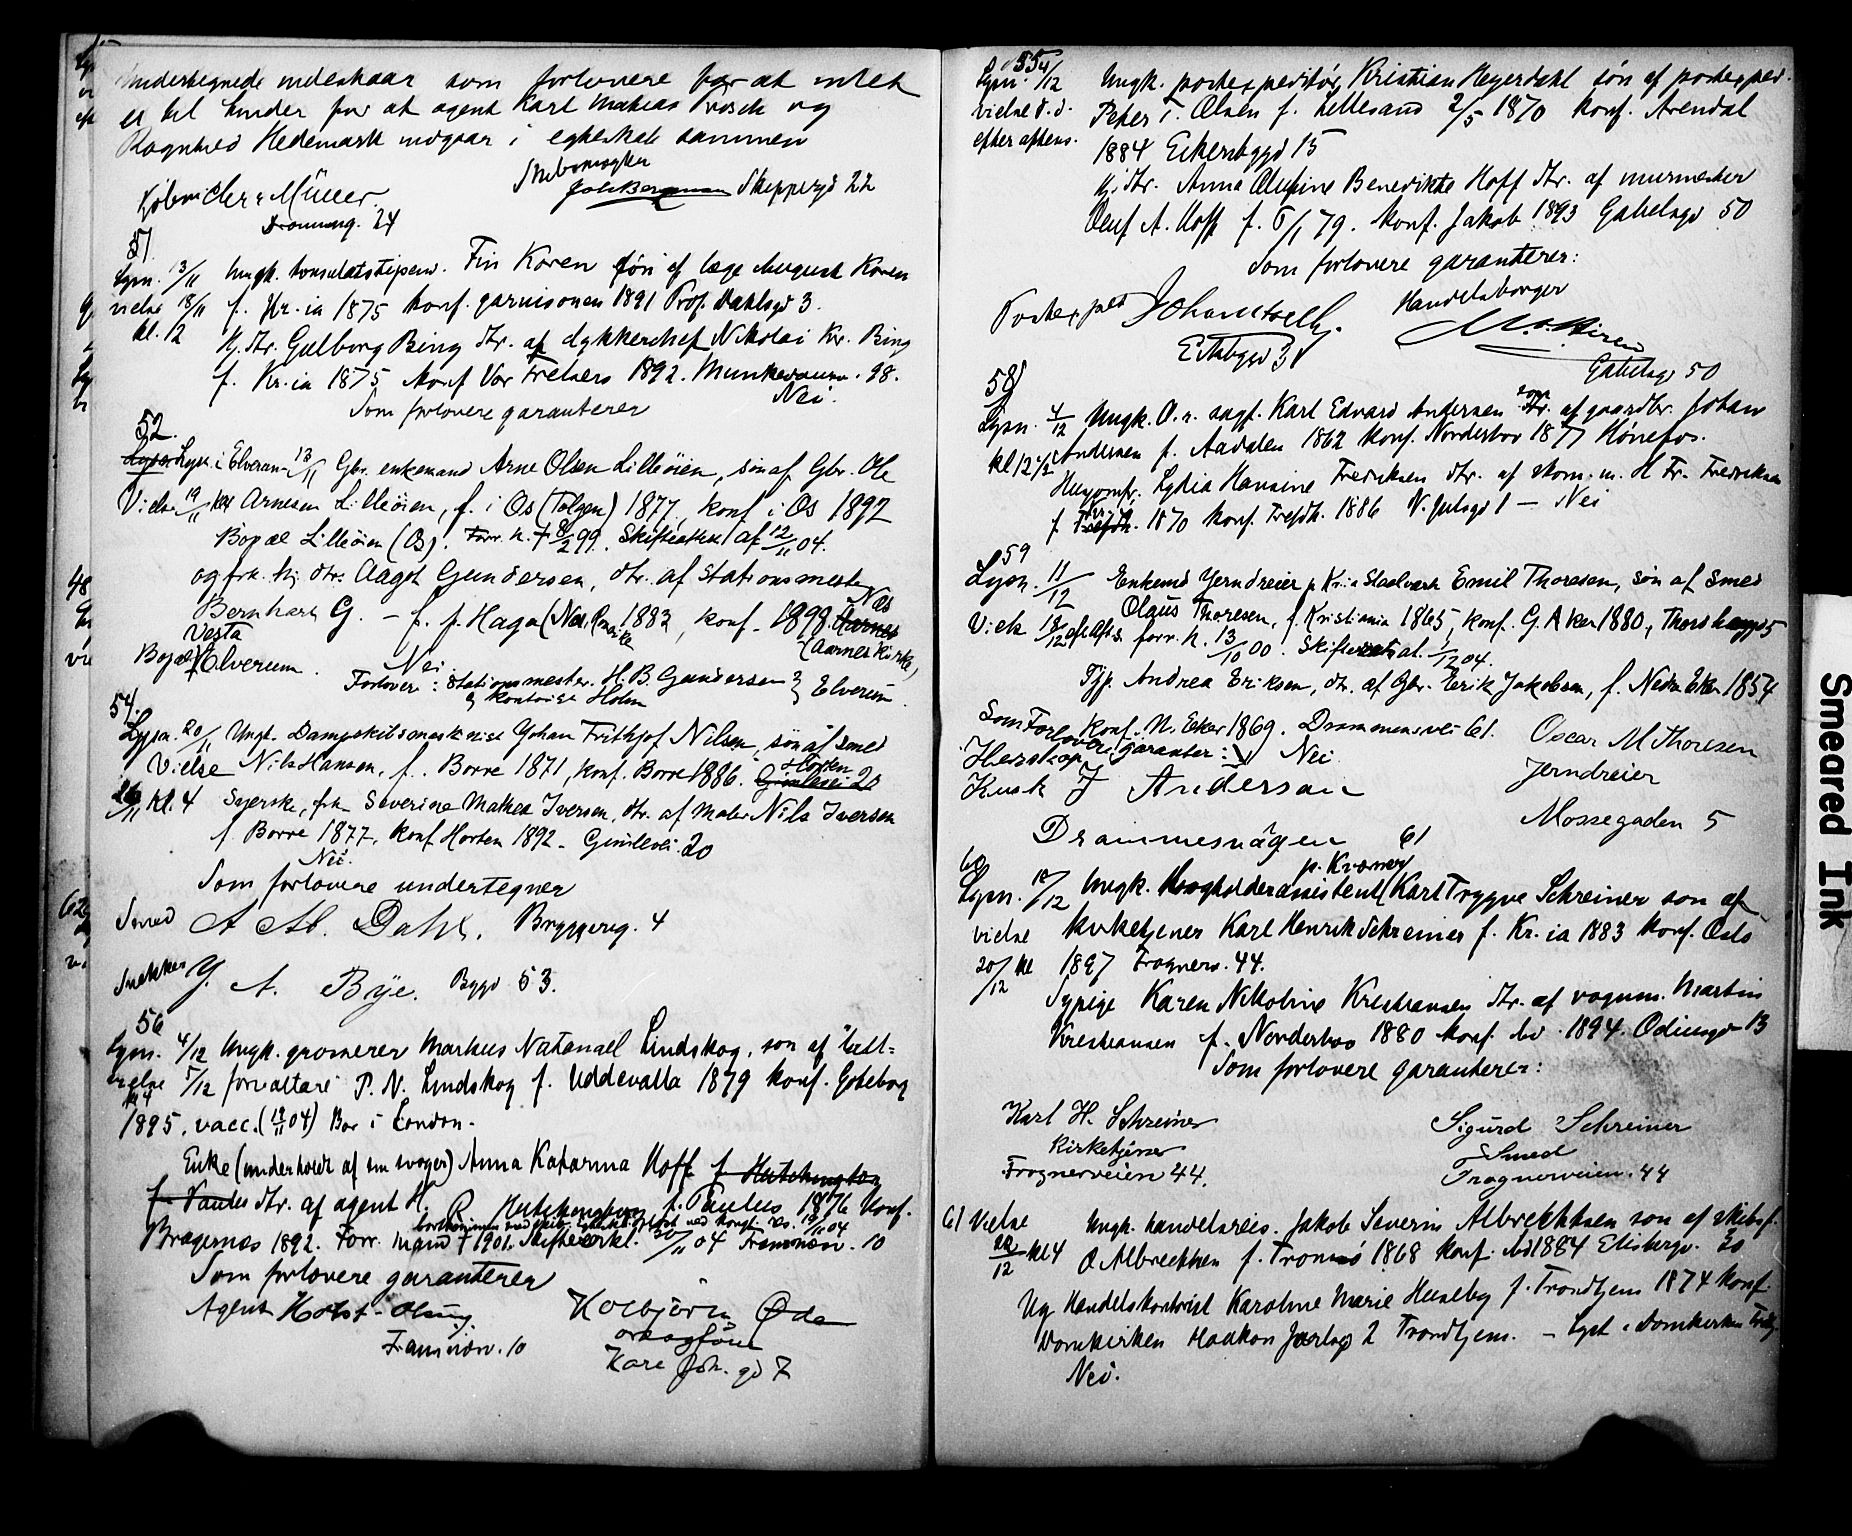 Undertegnede indestaar som forlovere for at intet
er til hinder for at agent Karl Mathias Trosch og
Ragnhild Hedemark indgaar i egteskab sammen
Skibsmægler
Kjøbm. Chr. Müller. Joh. Bergman Skipperg 22
Dronning. 24
51.
Lysn. 13/11 Ungk. konsulatstipend. Fin Koren søn af læge August Koren
vielse 18/11 f. Kr.ia 1875 konf. garnisonen 1891 Prof. Dahlsgd 3.
kl. 12 Hj. dtr. Gulborg Bing dtr. af dykkerchef Nikolai Kr. Bing
f. Kr.ia 1875 konf Vor Frelsers 1892. Munkedamsv. 98.
Som forlovere garanterer Nei.
52.
Lysn. i Elverum 13/11 Gbr. enkemand Arne Olsen Lilleøien, søn af Gbr. Ole
Vielse 19/11 Arnesen Lilleøien, f. i Os (Tolgen) 1877, konf i Os 1892
Bopæl Lilleøien (Os). Forr. h. † 8/2 99. Skifteattest af 12/11 04.
og frk. hj. dtr. Aagot Gundersen, dtr. af Stationsmester
Bernhart G. – f. p. Haga (Nes, Romerike 1883, konf. 1898. Nes
Vesta (Aarnes kirke,
Bopæl Elverum. Nei.
Forlovere: Stationsmester H. B. Gundersen } Elverum.
og kontorist Holm
54.
Lysn. 20/11 Ungk. Dampskibsmaskinist Johan Frithjof Nilsen, søn af smed
Vielse Nils Hansen, f. Borre 1871, konf. Borre 1886. Horten
26/11 kl. 4 Syerske, frk. Severine Mathea Iversen, dtr. af maler Nils Iversen
f. Borre 1877, konf Horten 1892 – Gimlevei 20
Nei.
Som forlovere undertegner
Smed A Ab. Dahl. Bryggerig. 4
Snekker J. A. Bye. Bygd 53.
56
Lysn. 4/12 Ungk. groserer Markus Natanael Lindskog, søn af
vielse 5/12 forvaltare P. N. Lindskog f. Uddevalla 1879 konf. Gøteborg
kl 4
1895. vacc. Bor i London.
Enke (underholdt af sin svoger) Anna Katarina Hoff f. Hutchington
dtr. af agent H. P. f. 1876 konf.
Bragernes 1892. Forr. mand † 1901. Skifteerkl. 30/11 04 Framnæsv. 10
Som forlovere garanterer
Agent Holst-Olsen. Kolbjörn Øde
Framnæsv. 10 orlogsfour
Karl Joh. gd 7
55
Lysn. 4/12 Ungk. postexpeditør Kristian Heyerdahl søn af postexped.
vielse s. d. Peter T. Olsen f. Lillesand 2/5 1870 konf. Arendal
efter aftens. 1884 Eckersbergsgd 15
Hj. dtr. Anna Alufine Benedikte Hoff dtr. af murmester
Oluf A. Hoff f. 6/1 79. konf. Jakob 1893 Gabelsgd 50
Som forlovere garanterer:
Postexped Handelsborger
Gabelsgd 50
58
Lysn. 4/12 Ungk. O.r. sagf. Karl Edvard Andersen søn af gaardbr. Johan
kl 12 1/2 Andersen f. Aadalen 1862 konf. Norderhov 1877 Hønefos.
Husjomfr. Lydia Hansine Fredriksen dtr. af H. Fr. Fredriksen
f. Kr. 1870 konf. Trefdh. 1886 N. Juelsgd 1 – Nei
59
Lysn. 11/12 Enkemd Jerndreier p. Kr.ia Staalverk Emil Thoresen, søn af smed
Olaus Thoresen, f. Kristiania 1865, konf. G. Aker 1880,
Vielse 18/12 eft Afts forr. h. 13/10 00. Skifteattest 1/12 04.
Tjp. Andrea Eriksen, dtr. af Gbr. Erik Jakobsen, f. Nedre Eker 1854
konf. N. Eker 1869. Drammensvei 61. Oscar M Thoresen
Som Forlovere garanter: Nei Jerndreier
Herskap Mossegaden 5
Kusk J Anderson
Drammesvägen 61
60
p. Kværner
Lysn. 10/12 Ungk. bogholderassistent (Karl Trygve Schreiner søn af
vielse kirketjener Karl Henrik Schreiner f. Kr.ia 1883 konf. Oslo
20/12 kl 1897 Frognerv. 44.
Sypige Karen Nikoline Kristiansen dtr. af vognm. Martin
Kristiansen f. Norderhov 1880 konf. 1894. Odinsgd 13
Som forlovere garanterer:
Karl H. Schreiner Sigurd Schreiner
Kirketjener Smed
Frognerveien 44. Frognerveien. 44
61 Vielse Ungk. handelsreis. Jakob Severin Albrechtsen søn af skibsf.
22/12 kl 4 O Albrechtsen f. Tromsø 1868 konf. 1884 Elisbergv. 20
Ug Handelskontorist Karoline Marie Huseby f. Trondhjem 1874 konf.
Domkirken Haakon Jarlsgd 2 Trondhjem. – Lyst i Domkirken
Nei.
Smeared Ink